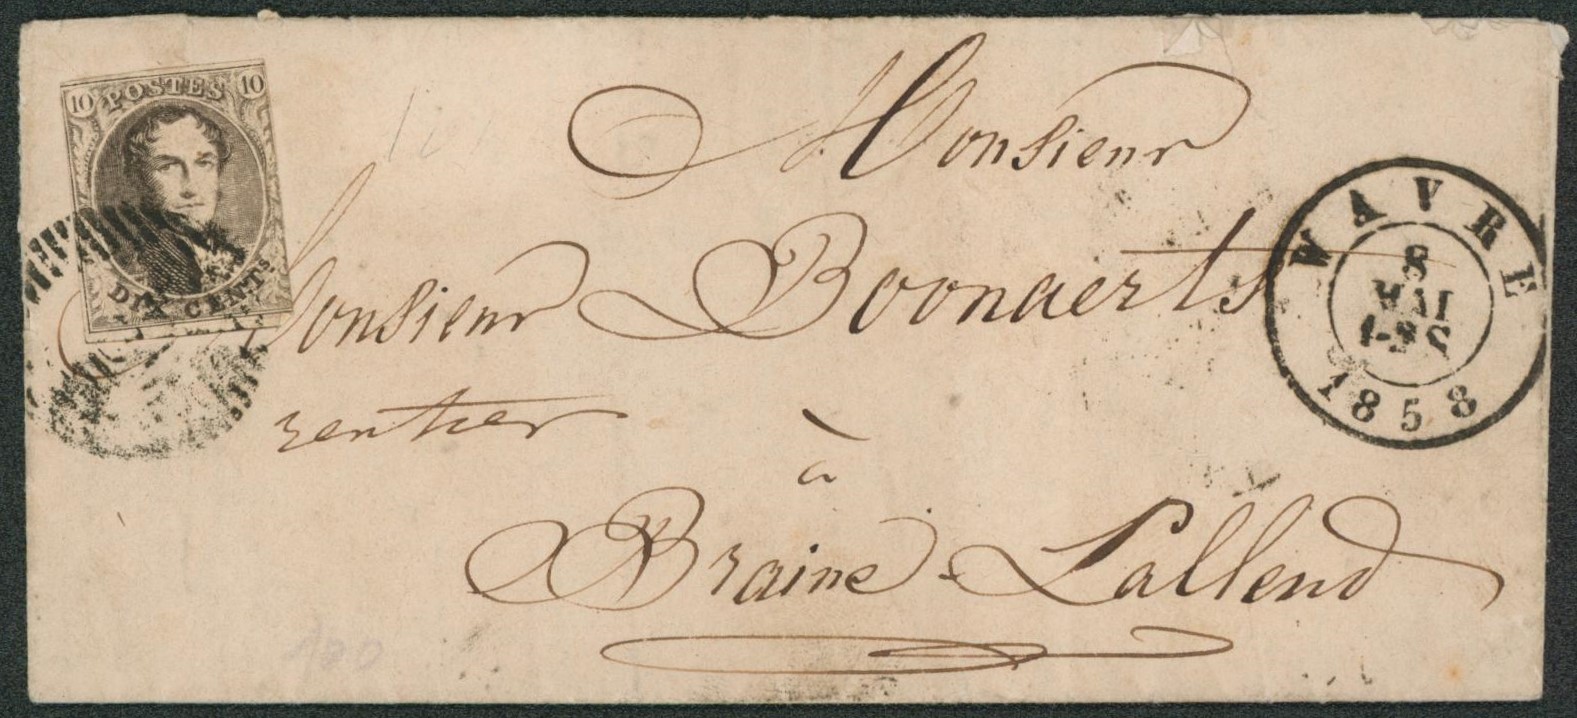 10 POSTES 10
DIX CENTS.
Monsieur
Monsieur Boonaerts
rentier
à
Braine-Lallend
WAVRE
8
MAI
1858
180